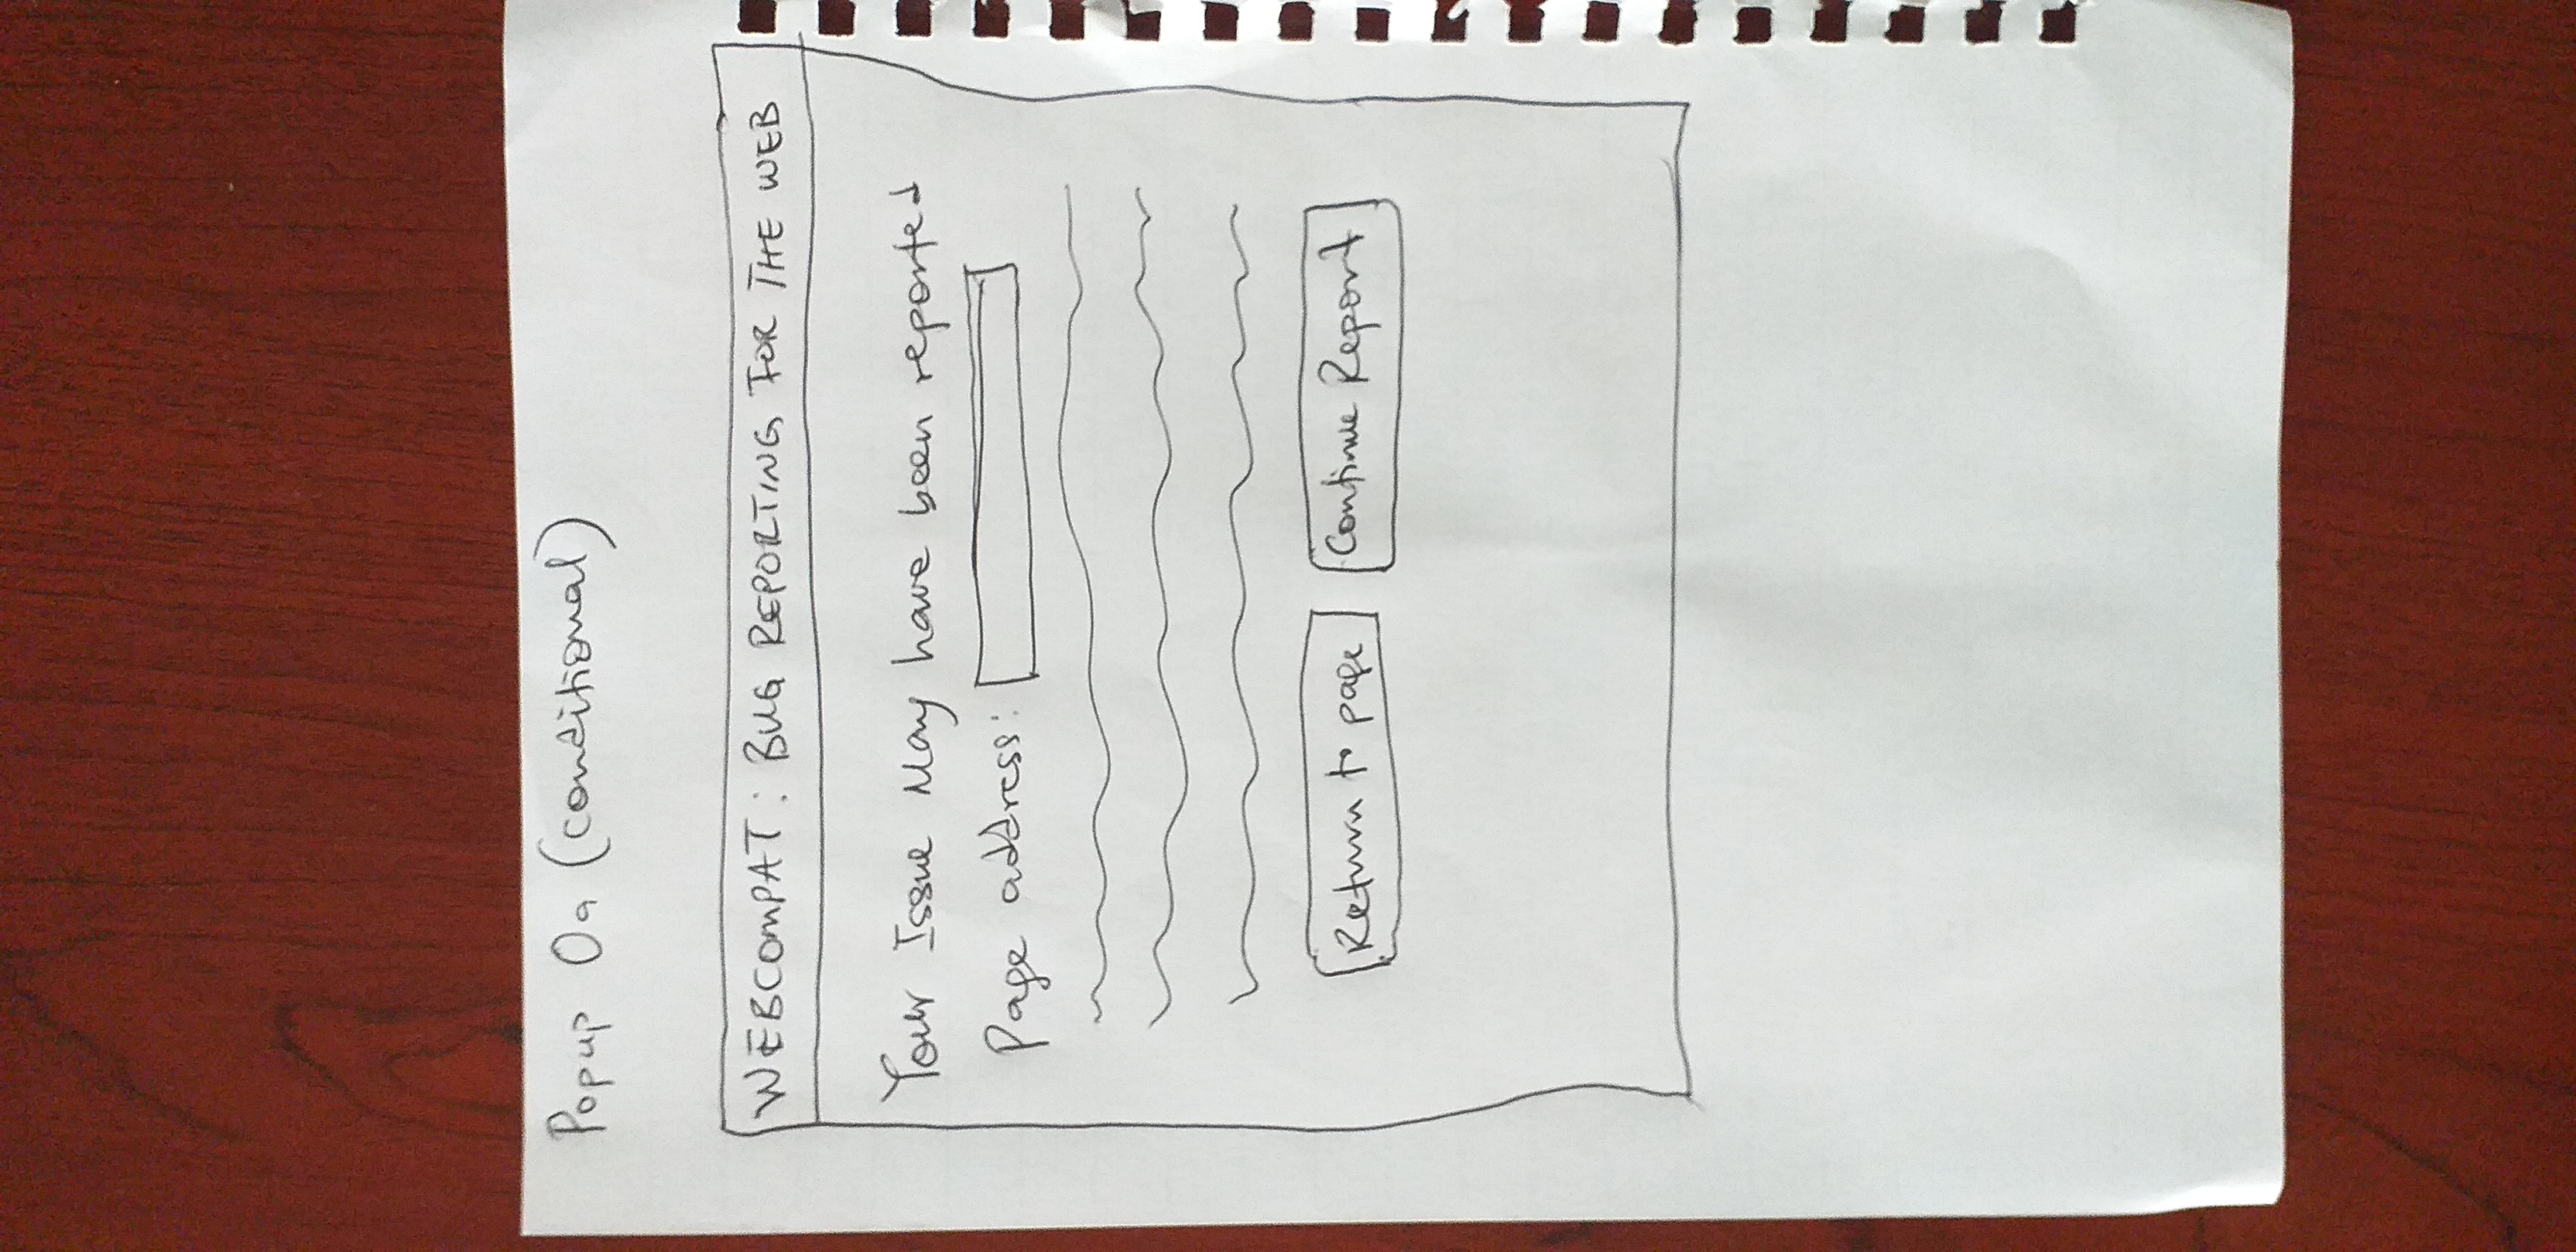 Popup 0a (conditional)
WEBCOMPAT: BUG REPORTING FOR THE WEB
Your Issue May have been reported
Page address:
Return to page
Continue Report